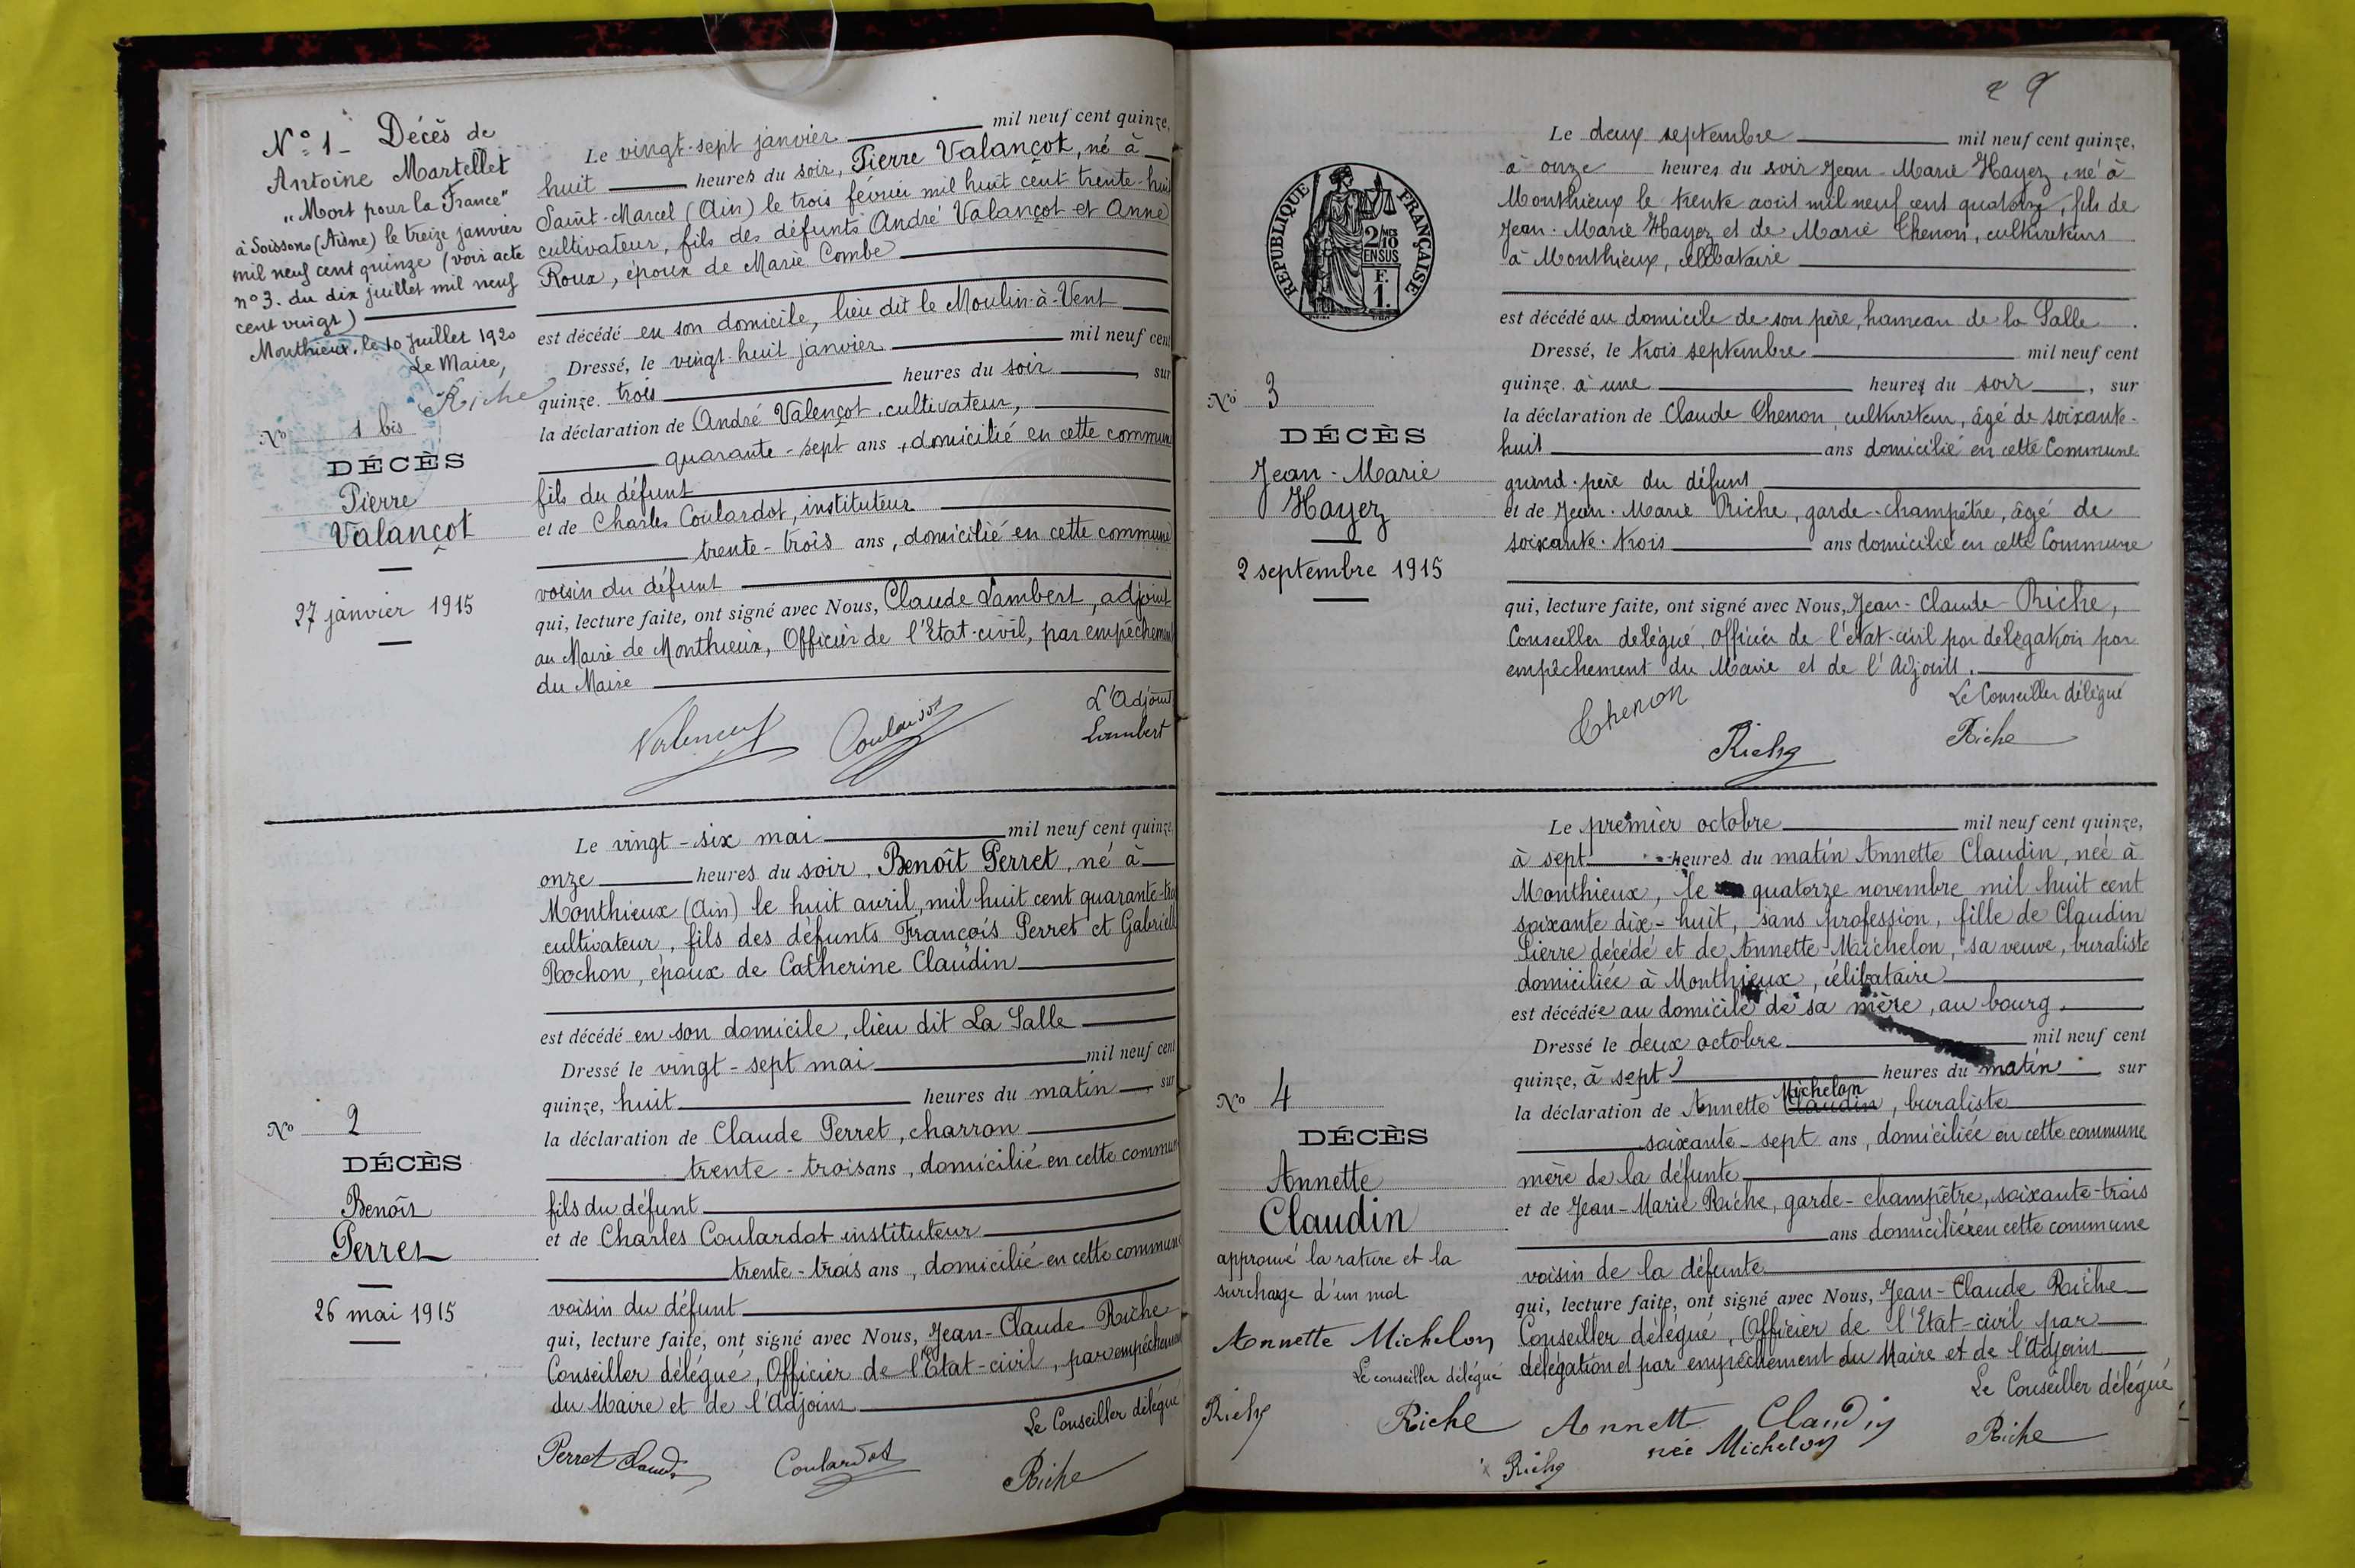 N° 1 - Décès de
Antoine Martellet
"Mort pour la France"
à Soissons (Aisne) le treize janvier
mil neuf cent quinze (voir acte
n° 3. du dix juillet mil neuf
cent vingt)
Monthieux, le 10 Juillet 1920
Le Maire,
Riche
N° 1 bis
DÉCÈS
Pierre
Valançot
27 janvier 1915
Le vingt-sept janvier mil neuf cent quinze,
huit heures du soir, Pierre Valançot, né à
Saint-Marcel (Ain) le trois février mil huit cent trente-huit
cultivateur, fils des défunts André Valançot et Anne
Roux, époux de Marie Combe
est décédé en son domicile, lieu dit le Moulin-à-Vent
Dressé, le vingt-huit janvier mil neuf cent
quinze. trois heures du soir, sur
la déclaration de André Valençot, cultivateur,
quarante-sept ans, domicilié en cette commune
fils du défunt
et de Charles Coulardot, instituteur
trente-trois ans, domicilié en cette commune
voisin du défunt
qui, lecture faite, ont signé avec Nous, Claude Lambert, adjoint
au Maire de Monthieux, Officier de l'Etat-civil, par empêchement
du Maire
L'Adjoint
Valençot Coulardot Lambert
N° 2
DÉCÈS
Benoît
Perret
26 mai 1915
Le vingt-six mai mil neuf cent quinze,
onze heures du soir, Benoît Perret, né à
Monthieux (Ain) le huit avril, mil huit cent quarante-trois
cultivateur, fils des défunts François Perret et Gabrielle
Rochon, époux de Catherine Claudin
est décédé en son domicile, lieu dit La Salle
Dressé le vingt-sept mai mil neuf cent
quinze, huit heures du matin, sur
la déclaration de Claude Perret, charron
trente-trois ans, domicilié en cette commune
fils du défunt
et de Charles Coulardot instituteur
trente-trois ans, domicilié en cette commune
voisin du défunt
qui, lecture faite, ont signé avec Nous, Jean-Claude Riche
Conseiller délégué, Officier de l'Etat-civil, par empêchement
du Maire et de l'Adjoint
Le Conseiller délégué
Perret Claude Coulardot Riche
29
RÉPUBLIQUE FRANÇAISE
2/10
EN SUS
F.
1.
N° 3
DÉCÈS
Jean-Marie
Hayez
2 septembre 1915
Le deux septembre mil neuf cent quinze,
à onze heures du soir Jean-Marie Hayez, né à
Monthieux le trente août mil neuf cent quatorze, fils de
Jean-Marie Hayez et de Marie Chenon, cultivateurs
à Monthieux, célibataire
est décédé au domicile de son père, hameau de la Salle.
Dressé, le trois septembre mil neuf cent
quinze. à une heures du soir, sur
la déclaration de Claude Chenon, cultivateur, âgé de soixante-
huit ans domicilié en cette Commune
grand-père du défunt
et de Jean-Marie Riche, garde-champêtre, âgé de
soixante-trois ans domicilié en cette Commune
qui, lecture faite, ont signé avec Nous, Jean-Claude Riche,
Conseiller délégué, officier de l'état-civil par délégation par
empêchement du Maire et de l'Adjoint.
Le Conseiller délégué
Chenon Riche Riche
N° 4
DÉCÈS
Annette
Claudin
approuvé la rature et la
surcharge d'un mot
Annette Michelon
Le conseiller délégué
Riche Riche
Le premier octobre mil neuf cent quinze,
à sept heures du matin Annette Claudin, née à
Monthieux, le quatorze novembre mil huit cent
soixante dix-huit, sans profession, fille de Claudin
Pierre décédé et de Annette Michelon, sa veuve, buraliste
domiciliée à Monthieux, célibataire
est décédée au domicile de sa mère, au bourg.
Dressé le deux octobre mil neuf cent
quinze, à sept heures du matin, sur
la déclaration de Annette Claudin Michelon, buraliste
soixante-sept ans, domiciliée en cette commune
mère de la défunte
et de Jean-Marie Riche, garde-champêtre, soixante-trois
ans domiciliés en cette commune
voisin de la défunte
qui, lecture faite, ont signé avec Nous, Jean-Claude Riche
Conseiller délégué, Officier de l'Etat-civil par
délégation et par empêchement du Maire et de l'Adjoint
Le Conseiller délégué
Annette Claudin
née Michelon Riche
Riche